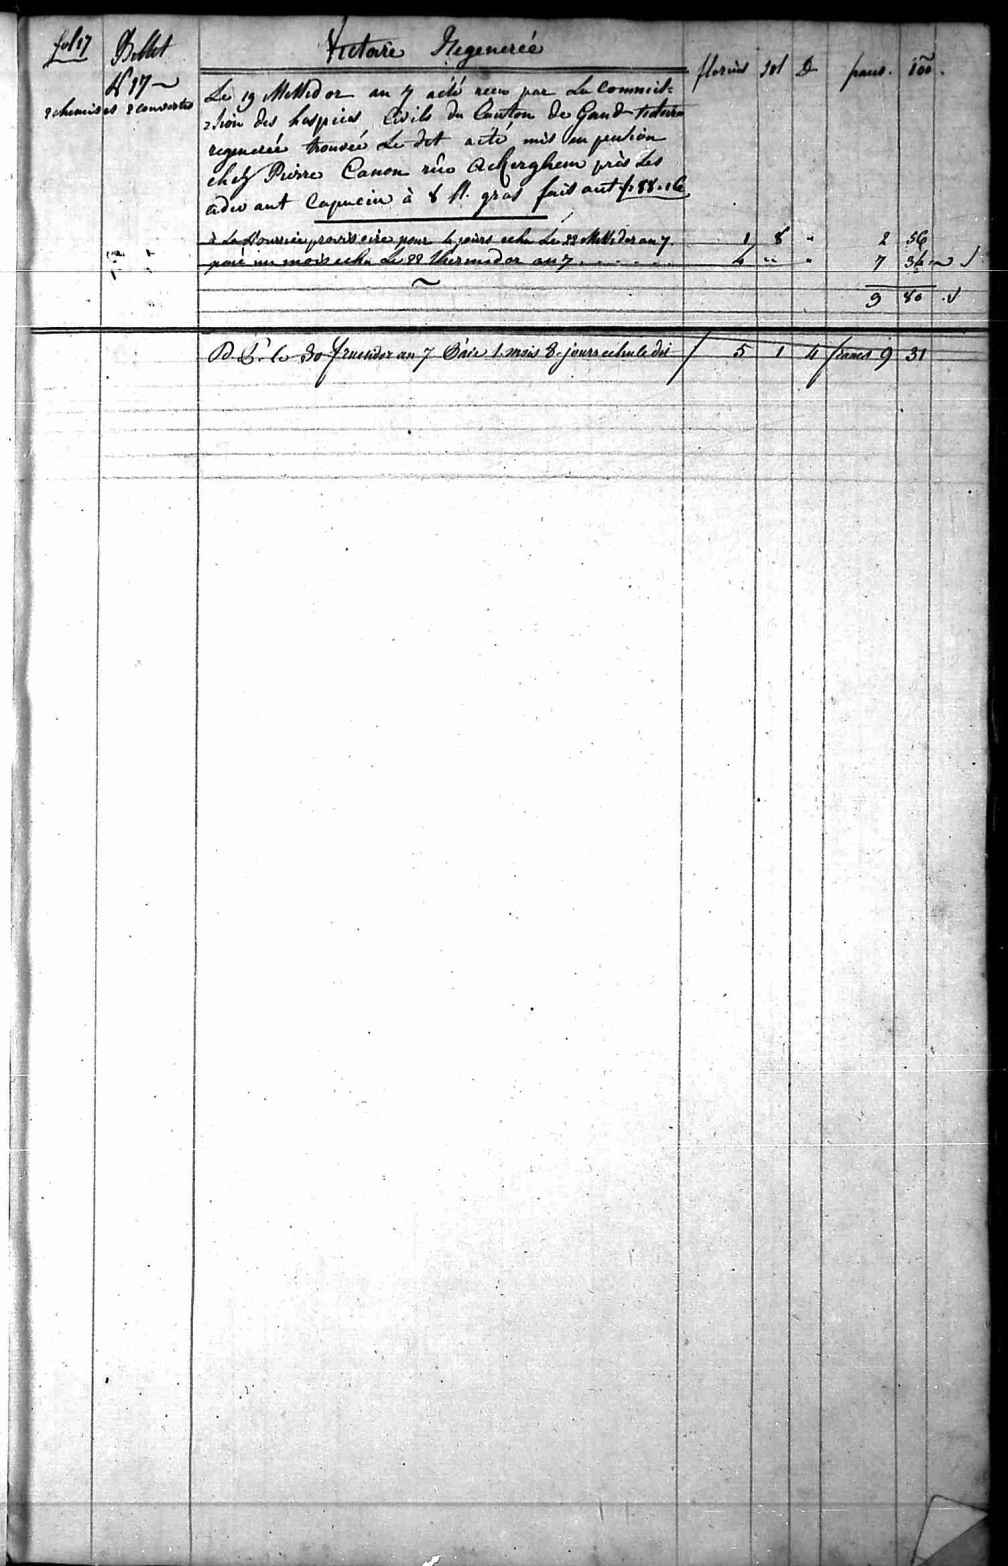 fol 17
Billet
N 17
2 chemises 2 couvertes
Victoire Regenerée
florins sol D francs 100
Le 19 Messidor an 7 a été recu par La Commis=
=sion des hospices Civils du Canton de Gand Victoire
regenerée trouvée Le dit a été mis en pension
chez Pierre Canon rue Ackerghem près Les
adevant Capucin à 8 fl. gros faisant f 88-16
à La Nourrice provisoire pour 4 jours echu Le 22 Messidor an 7. 1 8 " 2 56
paié un mois echu Le 22 thermidor an 7 4 " " 7 34
9 80
le 30 fructidor an 7 Paié 1. mois 8. jours echu le dit 5 1 4 francs 9 31